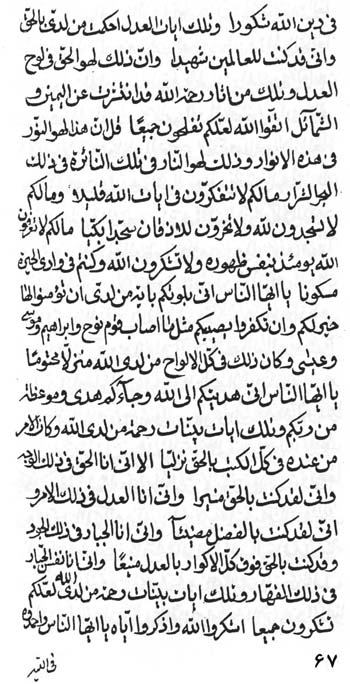 فی دین الله شکورا وتلک ایات العدل احکمت من لدی بالحق
وانی قد کنت للعالمین شهیدا وان ذلک لهو الحق فی لوح
العدل وتلک من اثار رحمة الله قد انتثرت عن الیمین و
الشمآئل اتقوا الله لعلکم تفلحون جمیعا قل ان هذا لهو النور
فی هذه الانوار وذلک لهو النار فی تلک النآئرة فی ذلک
مالکم لا تتفکرون فی ایات الله قلیلا ومالکم
لا تسجدون لله ولا تخرون للاذقان سجدا بکیا مالکم لا
الله یومئذ بنفس ظهوره ولا تشکرون الله وکنتم فی وادی الحیرة
مسکونا یا ایها الناس انی بلوتکم بایة من لدی ان تؤمنوا لها
خیر لکم وان تکفروا یصیبکم مثل ما اصاب قوم نوح وابراهیم وموسی
وعیسی وکان ذلک فی کل الالواح من لدی الله منزلا مختوما
یا ایها الناس انی هدیتکم الی الله وجآءکم هدی وموعظة
من ربکم وتلک ایات بینات رحمة من لدی الله وکان الامر
من عنده فی کل الکتب بالحق نزلیا الا انی انا الحق فی ذلک
وانی لقد کنت بالحق منیرا وانی انا العدل فی ذلک الامر و
انی لقد کنت بالفضل مضیئا وانی انا الجبار فی ذلک
وقد کنت بالحق فوق کل الاکوار بالعدل منیعا وانی انا
فی ذلک القهار وتلک ایات بینات رحمة من لدی الله لعلکم
تشکرون جمیعا اشکروا الله واذکروا ایاه یا ایها الناس
۶۷